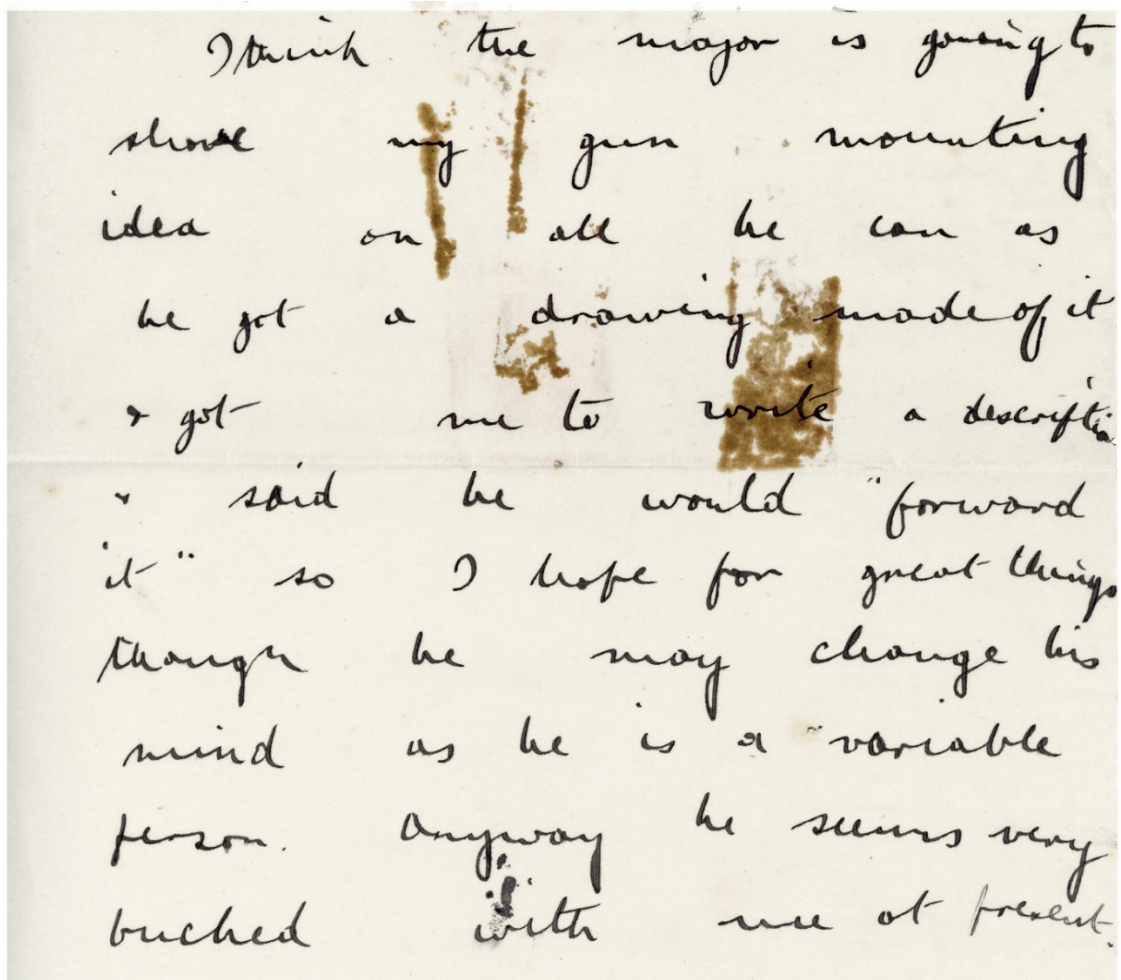 I think the major is going to
shove my gun mounting
idea on all he can as
he got a drawing made of it
& got me to write a descriptio
& said he would "forward
it" so I hope for great things
though he may change his
mind as he is a variable
person. Anyway he seems very
bucked with me at present.